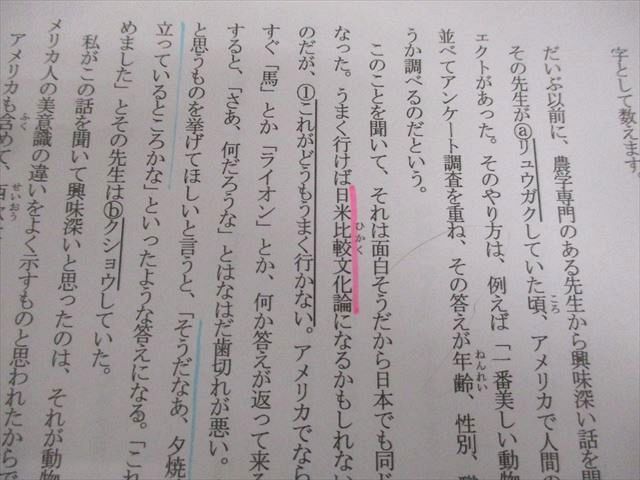 字として数えます。
だいぶ以前に、農学専門のある先生から興味深い話を聞
その先生がⓐリュウガクしていた頃、アメリカで人間の
ころ
ェクトがあった。そのやり方は、例えば「一番美しい動物
並べてアンケート調査を重ね、その答えが年齢、性別、職
ねんれい
うか調べるのだという。
このことを聞いて、それは面白そうだから日本でも同じ
なった。うまく行けば日米比較文化論になるかもしれない
ひかく
のだが、①これがどうもうまく行かない。アメリカでなら
すぐ「馬」とか「ライオン」とか、何か答えが返って来る
すると、「さあ、何だろうな」とはなはだ歯切れが悪い。
と思うものを挙げてほしいと言うと、「そうだなあ、夕焼
立っているところかな」といったような答えになる。「これ
めました」とその先生はⓑクショウしていた。
私がこの話を聞いて興味深いと思ったのは、それが動物
メリカ人の美意識の違いをよく示すものと思われたからで
アメリカも含めて、西
ふく
せいおう